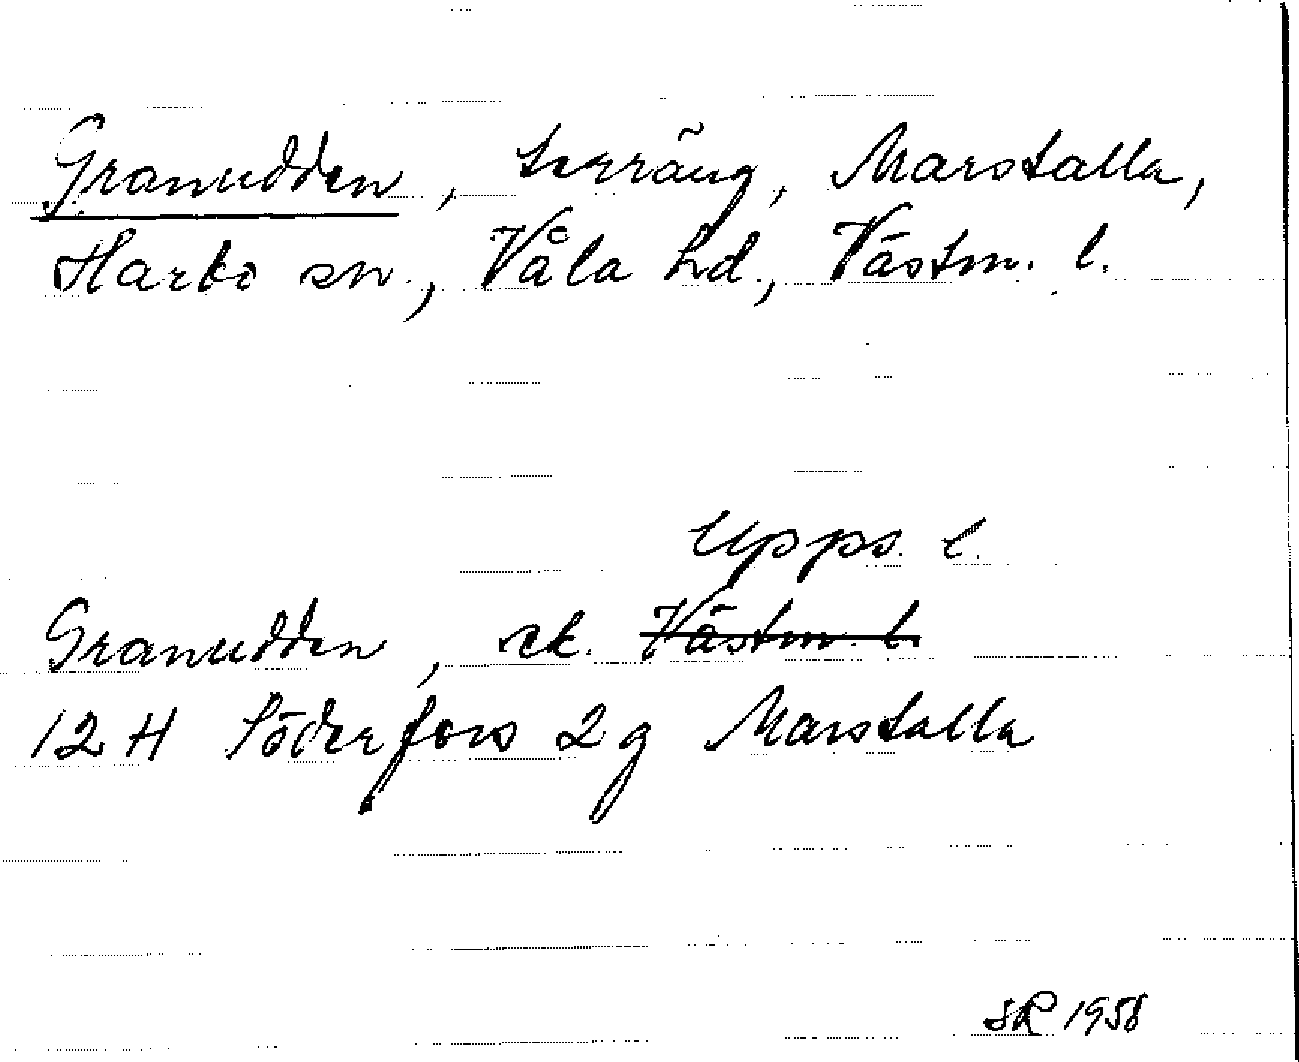 Granudden, terräng, Marstalla,
Harbo sn., Våla hd., Västm. l.
Upps. l.
Granudden, ek. Västm. l.
12 H Söderfors 2 g Marstalla
SR 1958